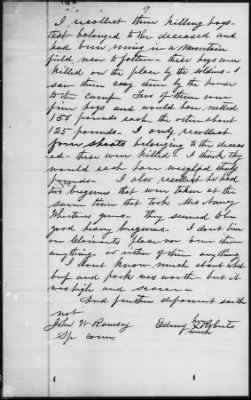 9
I recollect their killing hogs
that belonged to the deceased and
had been running in a mountain
field near to fosters - these hogs were
killed on the place by the soldiers - I
saw them carry them by the house
to the camp. Two of them were
fine hogs and would have netted
150 pounds each the other about
125 pounds - I only recollect
four shoats belonging to the deceas
ed - these were killed I think they
would each have weighed thirty
pounds - I also recollect he had
two beegums that were taken at the
same time that took Mrs Nancy
gums - they seemed to be
good heavy beegums - I don't live
on claimants place nor owe them
anything or either of them anything
I dont know much about what
beef and pork was worth - but it
was high and scarce -
And further deponent saith
not
John W Ramsey
Sp comr
Edney his X Roberts
mark